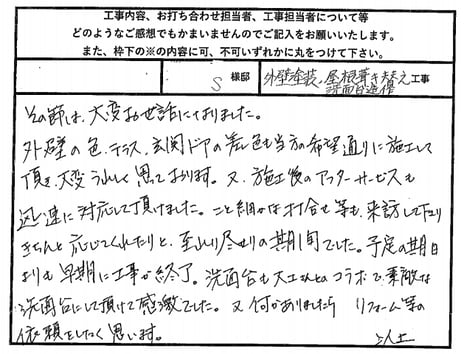 工事内容、お打ち合わせ担当者、工事担当者について等
どのようなご感想でもかまいませんのでご記入をお願いいたします。
また、枠下の※の内容に可、不可いずれかに丸をつけて下さい。
S 様邸 外壁塗装、屋根葺き替え工事
洗面台造作
その節は、大変お世話になりました。
外壁の色、テラス、玄関ドアの差し色も当方の希望通りに施工して
頂き、大変うれしく思っております。又、施工後のアフターサービスも
迅速に対応して頂けました。こと細かな打合せ等も、来訪して下さり
きちんと応じてくれたりと、至れり尽せりの期間でした。予定の期日
よりも早期に工事が終了。洗面台も大工さんとのコラボで、素敵な
洗面台にして頂けて感激でした。又何かありましたら リフォーム等の
依頼をしたく思います。 以上